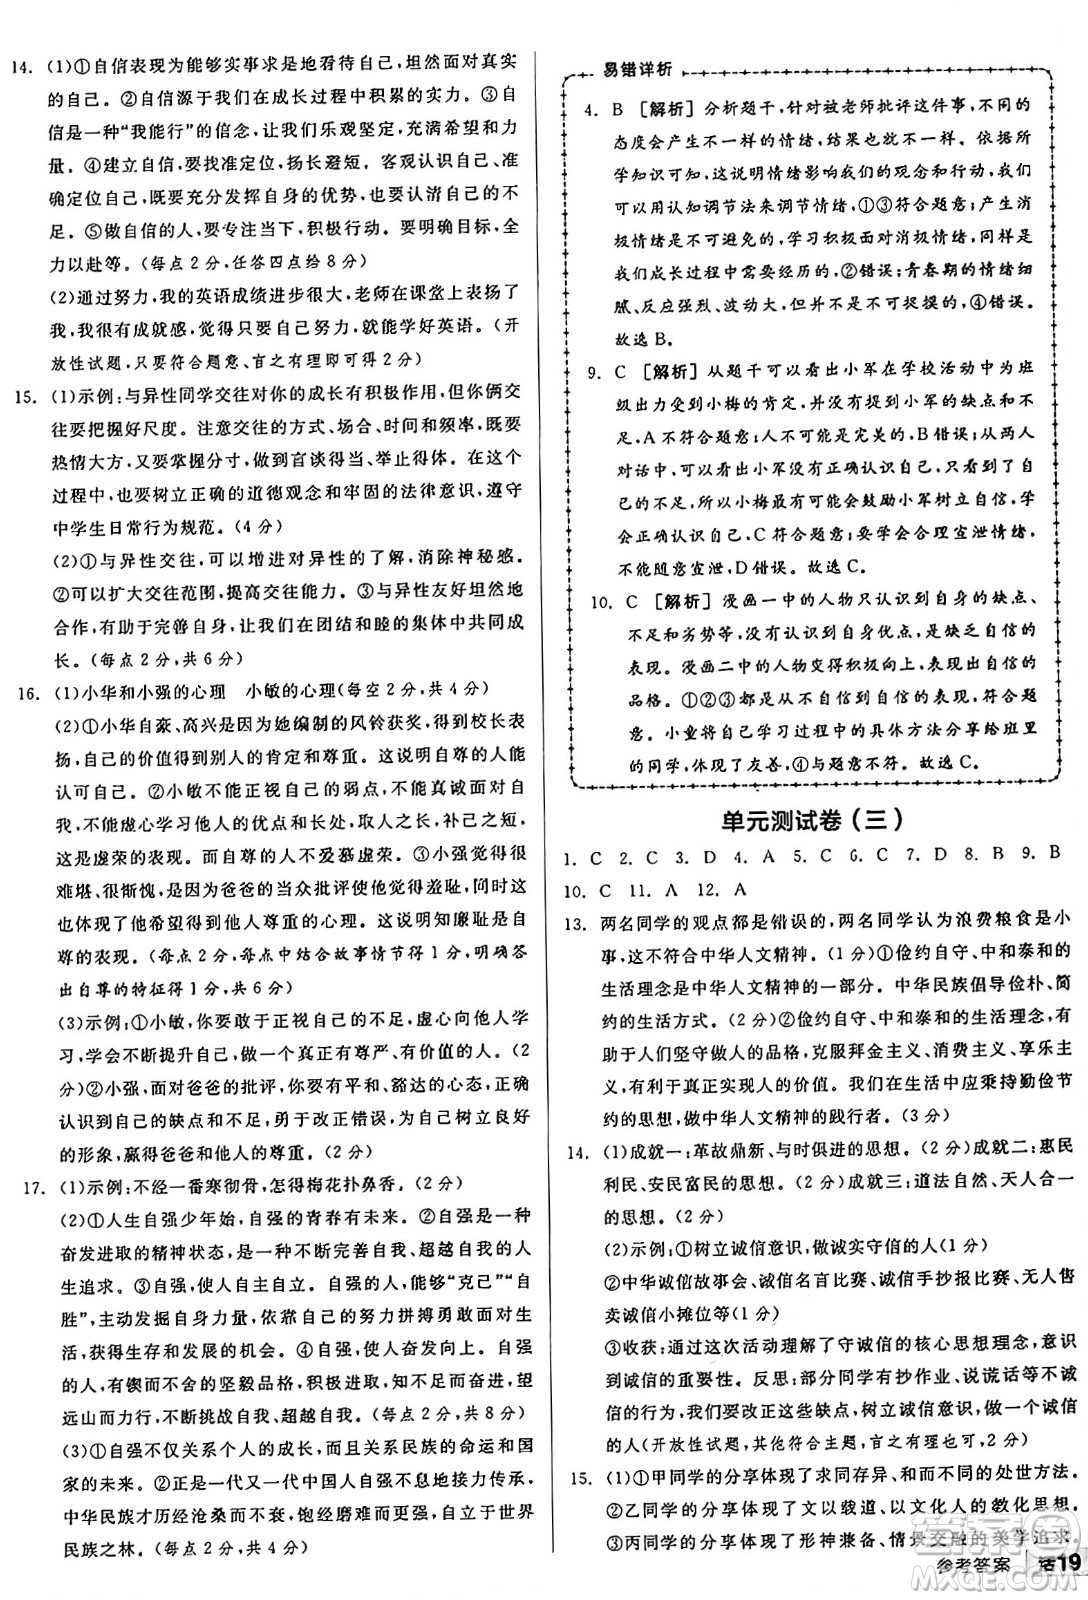 14. (1)①自信表现为能够实事求是地看待自己,坦然面对真实
的自己。②自信源于我们在成长过程中积累的实力。③自
信是一种“我能行”的信念,让我们乐观坚定,充满希望和力
量。④建立自信,要找准定位,扬长避短。客观认识自己,
准确定位自己,既要充分发挥自身的优势,也要认清自己的不
足。⑤做自信的人,要专注当下,积极行动。要明确目标,全
力以赴等。(每点2分,任答四点给8分)
(2)通过努力,我的英语成绩进步很大,老师在课堂上表扬了
我,我特别有成就感,觉得只要自己努力,就能学好英语。(开
放性试题,只要符合题意、言之有理即可得2分)
15. (1)示例:与异性同学交往对你的成长有积极作用,但你俩交
往要把握好尺度。注意交往的方式、场合、时间和频率,既要
热情大方,又要掌握分寸,做到言谈得当、举止得体。在这个
过程中,也要树立正确的道德观念和牢固的法律意识,遵守
中学生日常行为规范。(4分)
(2)①与异性交往,可以增进对异性的了解,消除神秘感。
②可以扩大交往范围,提高交往能力。③与异性友好坦然地
合作,有助于完善自身,让我们在团结和睦的集体中共同成
长。(每点2分,共6分)
16. (1)小华和小强的心理 小敏的心理(每空2分,共4分)
(2)①小华自豪、高兴是因为她编制的风铃获奖,得到校长表
扬,自己的价值得到别人的肯定和尊重。这说明自尊的人能
认可自己。②小敏不能正视自己的弱点,不能真诚面对自
我,不能虚心学习他人的优点和长处,取人之长,补己之短,
这是虚荣的表现。而自尊的人不爱慕虚荣。③小强觉得很
难堪、很惭愧,是因为爸爸的当众批评使他感到羞耻,同时这
也体现了他希望得到他人尊重的心理。这说明知廉耻是自
尊的表现。(每点2分,每点中结合故事情节得1分,明确答
出自尊的特征得1分,共6分)
(3)示例:①小敏,你要敢于正视自己的不足,虚心向他人学
习,学会不断提升自己,做一个有尊严、有价值的人。(2
分)②小强,面对爸爸的批评,你要有平和、豁达的心态,正确
认识到自己的缺点和不足,勇于改正错误,为自己树立良好
的形象,赢得爸爸和他人的尊重。(2分)
17. (1)示例:不经一番寒彻骨,怎得梅花扑鼻香。(2分)
(2)①人生自强少年始,自强的青春有未来。②自强是一种
奋发进取的精神状态,是一种不断完善自我、超越自我的人
生追求。③自强,使人自主自立。自强的人,能够“克己”“自
胜”,主动发掘自身力量,依靠自己的努力拼搏勇敢面对生
活,获得生存和发展的机会。④自强,使人积极进取。自强的人,
有锲而不舍的坚毅品格,积极进取,不安于现状,敢于眺望
远山而行,不断挑战自我、超越自我。(每点2分,共8分)
(3)①自强不仅关系个人的成长,而且关系民族的命运和国
家的未来。②正是一代又一代中国人自强不息地接力传承,
中华民族才历经沧桑而不衰、饱经磨难而更强,屹立于世界
民族之林。(每点2分,共4分)
易错详析
4. B [解析]分析题干,针对被老师批评这件事,不同的
态度会产生不一样的情绪,结果也会不一样。依据所
学知识可知,这说明情绪影响我们的观念和行动,我们
可以用认知调节法来调节情绪,①③符合题意;产生消
极情绪是不可避免的,学习积极面对消极情绪,是我们
成长过程中需要经历的,②错误;青春期的情绪细
腻、反应强烈、波动大,但并不是不可捉摸的,④错误。
故选B。
9. C [解析]从题干可以看出小军在学校活动中为班
级出力受到小梅的肯定,并没有提到小军的缺点和不
足,A不符合题意;人不可能是完美的,B错误;从两人
对话中可以看出小军没有正确认识自己,只看到自己
的不足,所以小梅可能会鼓励小军树立自信,学会
正确认识自己,C符合题意;要学会合理宣泄情绪,
不能随意宣泄,D错误。故选C。
10. C [解析]漫画一中的人物只认识到自身的缺点、
不足和劣势等,没有认识到自身优点,是缺乏自信的
表现。漫画二中的人物变得积极起来,表现出自信的
品格。①②③都是从不自信到自信的表现,符合题
意。小童将自己学习过程中的具体方法分享给班里
的同学,体现了友善,④与题意不符。故选C。
单元测试卷(三)
1. C 2. C 3. D 4. A 5. C 6. C 7. D 8. B 9. B
10. C 11. A 12. A
13. 两名同学的观点都是错误的,两名同学认为浪费粮食是小
事,这不符合中华人文精神。(1分)①俭约自守、中和泰和的
生活理念是中华人文精神的一部分。中华民族倡导俭朴、简
约的生活方式。(2分)②俭约自守、中和泰和的生活理念,有
助于人们坚守做人的品格,克服拜金主义、消费主义、享乐主
义,有利于真正实现人的价值。我们在生活中应秉持勤俭节
约的思想,做中华人文精神的践行者。(3分)
14. (1)成就一:革故鼎新、与时俱进的思想。(2分)成就二:惠民
利民、安民富民的思想。(2分)成就三:道法自然、天人合一
的思想。(2分)
(2)示例:①树立诚信意识,做诚实守信的人(1分)
②中华诚信故事会、诚信名言比赛、诚信手抄报比赛、无人售
卖诚信小摊位等(1分)
③收获:通过这次活动理解了守诚信的核心思想理念,意识
到诚信的重要性。反思:部分同学有抄作业、说谎话等不诚
信的行为,我们要改正这些缺点,树立诚信意识,做一个诚信
的人(开放性试题,符合主题,言之有理即可)(2分)
15. (1)①甲同学的分享体现了求同存异、和而不同的处世方法。
②乙同学的分享体现了文以载道、以文化人的教化思想。
③丙同学的分享体现了形神兼备、情景交融的美学追求。
参考答案 活19
答案圈
MXQE.COM